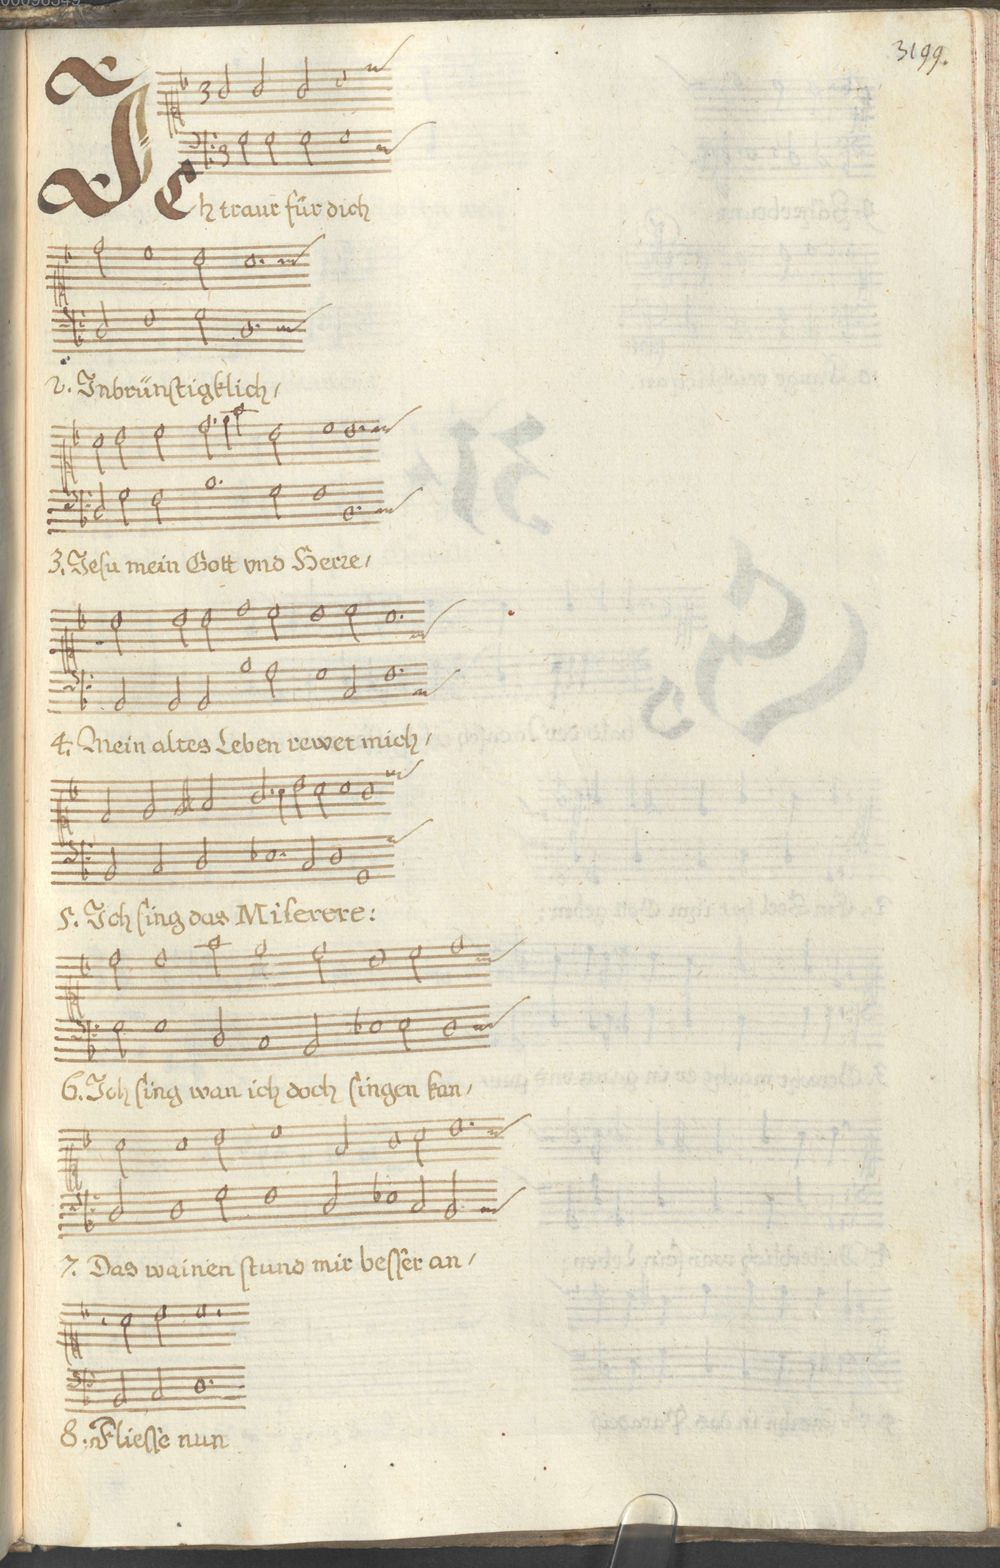 3199.
ICh traur für dich
2. Inbrünstigklich/
3. Jesu mein Gott vnd Herre/
4. Mein altes Leben rewet mich/
5. Ich sing das Miserere:
6. Ich sing wan ich doch singen kan/
7. Das wainen stund mir besser an/
8. Fliesse nun